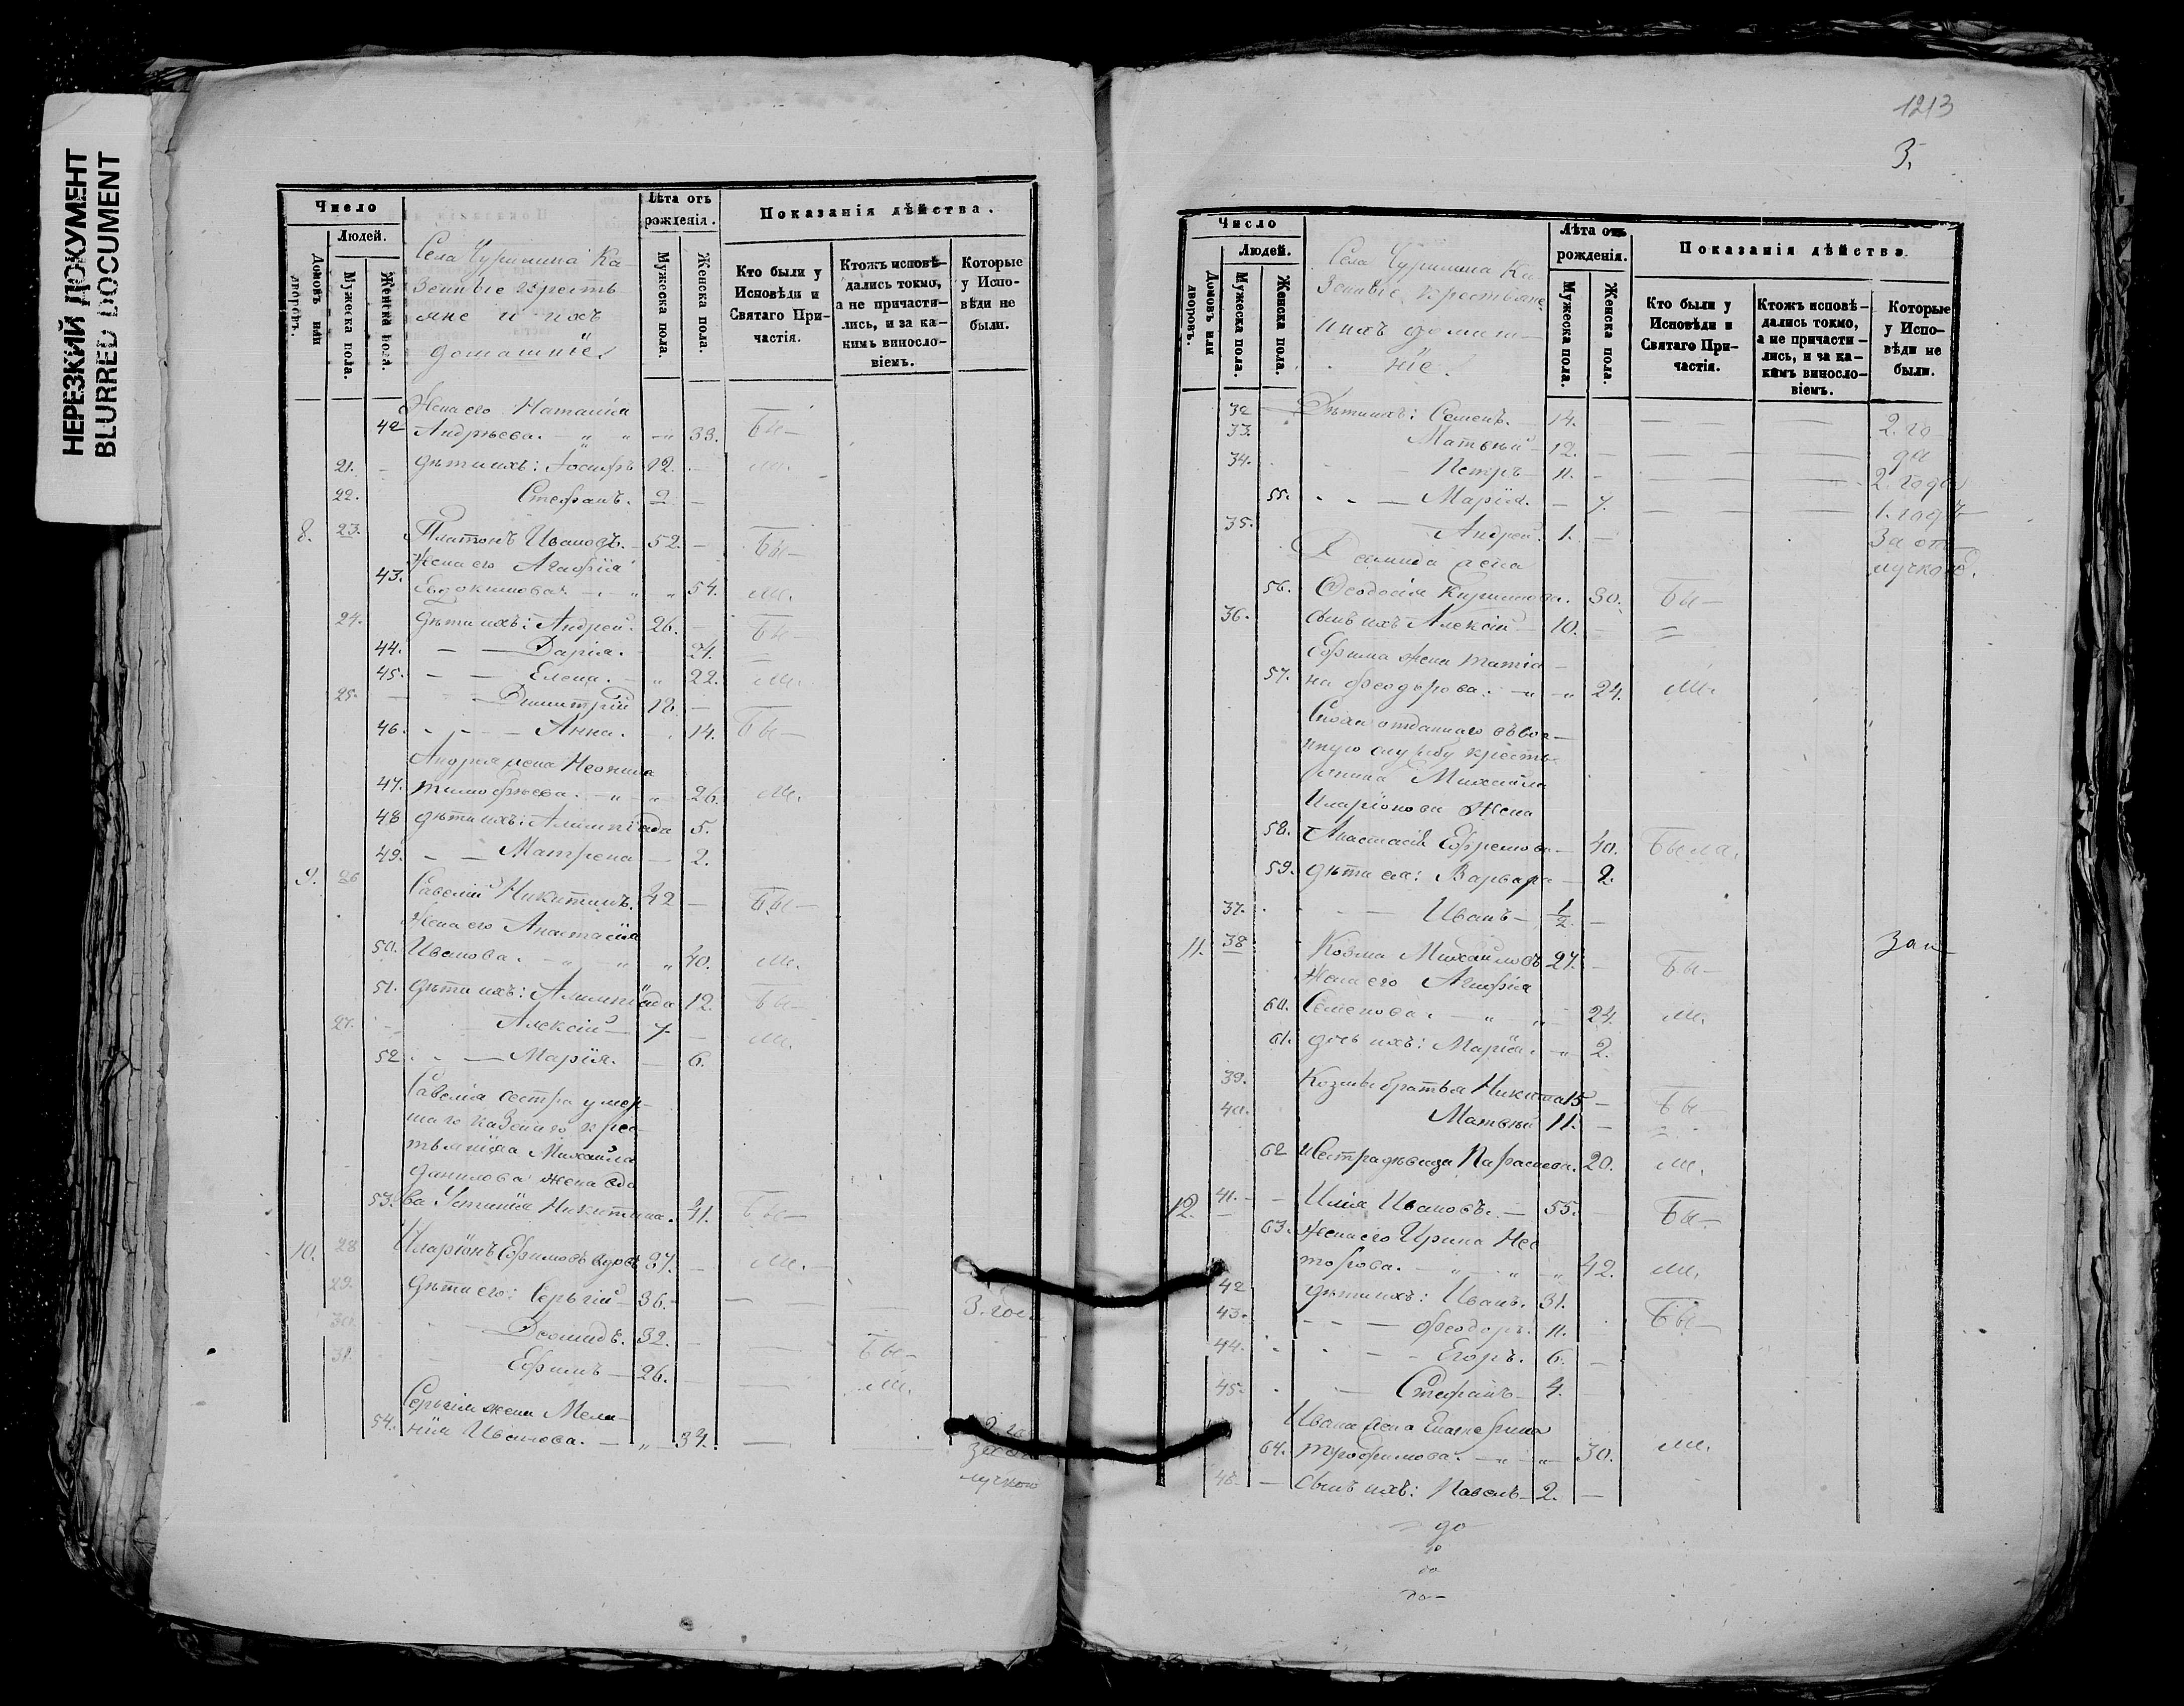 НЕРЕЗКИЙ ДОКУМЕНТ
BLURRED DOCUMENT
Число
Людей.
Домовъ или дворовъ.
Мужеска пола.
Женска пола.
Села Чуришина Ка-
зенные кресть
яне и ихъ
домашніе
Лѣта отъ рожденія.
Мужеска пола.
Женска пола.
Показанія дѣйства.
Кто были у Исповѣди и Святаго Причастія.
Ктожъ исповѣдались токмо, а не причастились, и за какимъ винословіемъ.
Которые у Исповѣди не были.
Жена его Наталія
42 Андрѣева. 33. Бы-
21. дѣти ихъ: Іосифъ 12. ли.
22. Стефанъ. 2
8. 23. Платонъ Ивановъ. 52. Бы-
Жена его Агафія
43. Евдокимова 54. ли.
24. дѣти ихъ: Андрей. 26. Бы-
44. Дарія. 24.
45. Елена. 22. ли.
25. Димитрій 18.
46. Анна. 14. Бы-
Андрея жена Неонила
47. Тимофѣева. 26. ли.
48 дѣти ихъ: Алимпіада 5.
49. Матрена 2.
9. 26 Савелій Никитинъ. 42 Бы-
Жена его Анастасія
50. Иванова. 40. ли.
51. дѣти ихъ: Алимпіада 12. Бы-
27. Алексій 7. ли.
52 Марія. 6.
Савелія сестра умер-
шаго казеннаго крес-
тьянина Михаила
Данилова жена вдо
53. ва Устинія Никитина. 41. Бы-
10. 28 Иларіонъ Ефимовъ вдовъ 57. ли.
29. дѣти его: Сергій 36. 3. го
30. Деомидъ. 32. Бы-
31. Ефимъ 26. ли.
Сергія жена Мела-
54. нія Иванова. 34. 2. го
за от
лучкою
1213
3.
Число
Людей.
Домовъ или дворовъ.
Мужеска пола.
Женска пола.
Села Чуришина Ка
зенные крестьяне
и ихъ домаш-
ніе.
Лѣта отъ рожденія.
Мужеска пола.
Женска пола.
Показанія дѣйства.
Кто были у Исповѣди и Святаго Причастія.
Ктожъ исповѣ-дались токмо, а не причасти-лись, и за ка-кимъ винословіемъ.
Которые у Исповѣди не были.
32 Дѣти ихъ: Семенъ. 14. 2. го
33. Матвѣй 12. да
34. Петръ 11. 2. года
55. Марія. 7. 1. годъ
35. Андрей. 1. За от
Деомида жена лучкою.
56. Феодосія Кирилова. 30. Бы-
36. сынъ ихъ Алексій 10.
Ефима жена Татіа-
57. на Феодорова. 24. ли.
Сноха отданнаго въ вое-
нную службу кресть
янина Михаила
Иларіонова жена
58. Анастасія Ефремова 40. Была.
59. дѣти ея: Варвара 2.
37. Иванъ 1/2
11. 38 Козма Михайловъ 27. Бы- За и
Жена его Агафія
60. Семенова. 24. ли.
61. дочь ихъ: Марія. 2.
39. Козмы братья Никита 15 Бы
40. Матвѣй 11.
62 и сестра дѣвица Параскева. 20. ли.
12. 41. Илія Ивановъ. 55. Бы-
63. Жена его Ирина Нес
торова. 42. ли.
42 дѣти ихъ: Иванъ. 31. Бы-
43. Феодоръ. 11.
44. Егоръ. 6.
45. Стефанъ 4.
Ивана жена Екатерина
64. Трофимова. 30. ли.
46 сынъ ихъ: Павелъ 2.
до